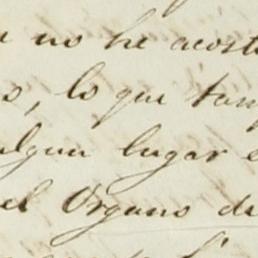 no he acost
s, lo que tam
algun lugar e
el Organo de